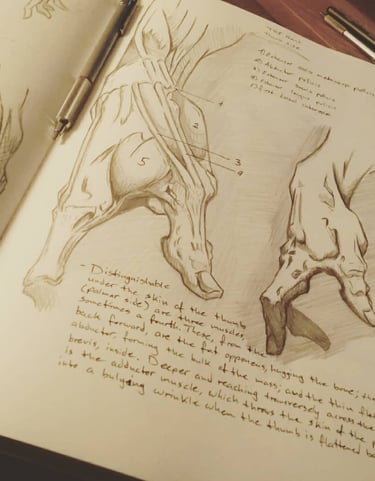 1) Extensor ossis metacarpi pollicis
2) Abductor pollicis
3) Extensor brevis pollicis
4) Extensor longus pollicis
5) first dorsal interosse
4
2
3
5
- Distinguishable
under the skin of the thumb
(palmar side) are three muscles
sometimes a fourth. These, from the
back forward, are the fat opponens, hugging the bone; the
abductor, forming the bulk of the mass; and the thin fle
brevis, inside. Deeper and reaching transversely across the
is the adductor muscle, which throws the skin of the p
into a bulging wrinkle when the thumb is flattened ba